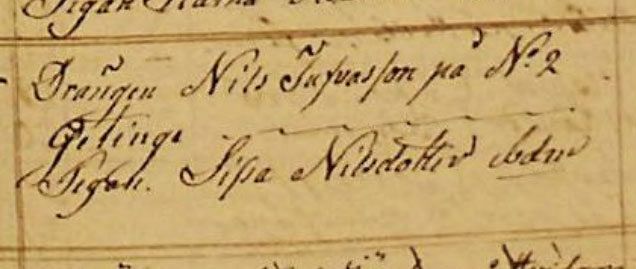 Pigan
Drängen Nils Tufvasson på No 2
Getinge
Pigan. Sissa Nilsdotter ibdm